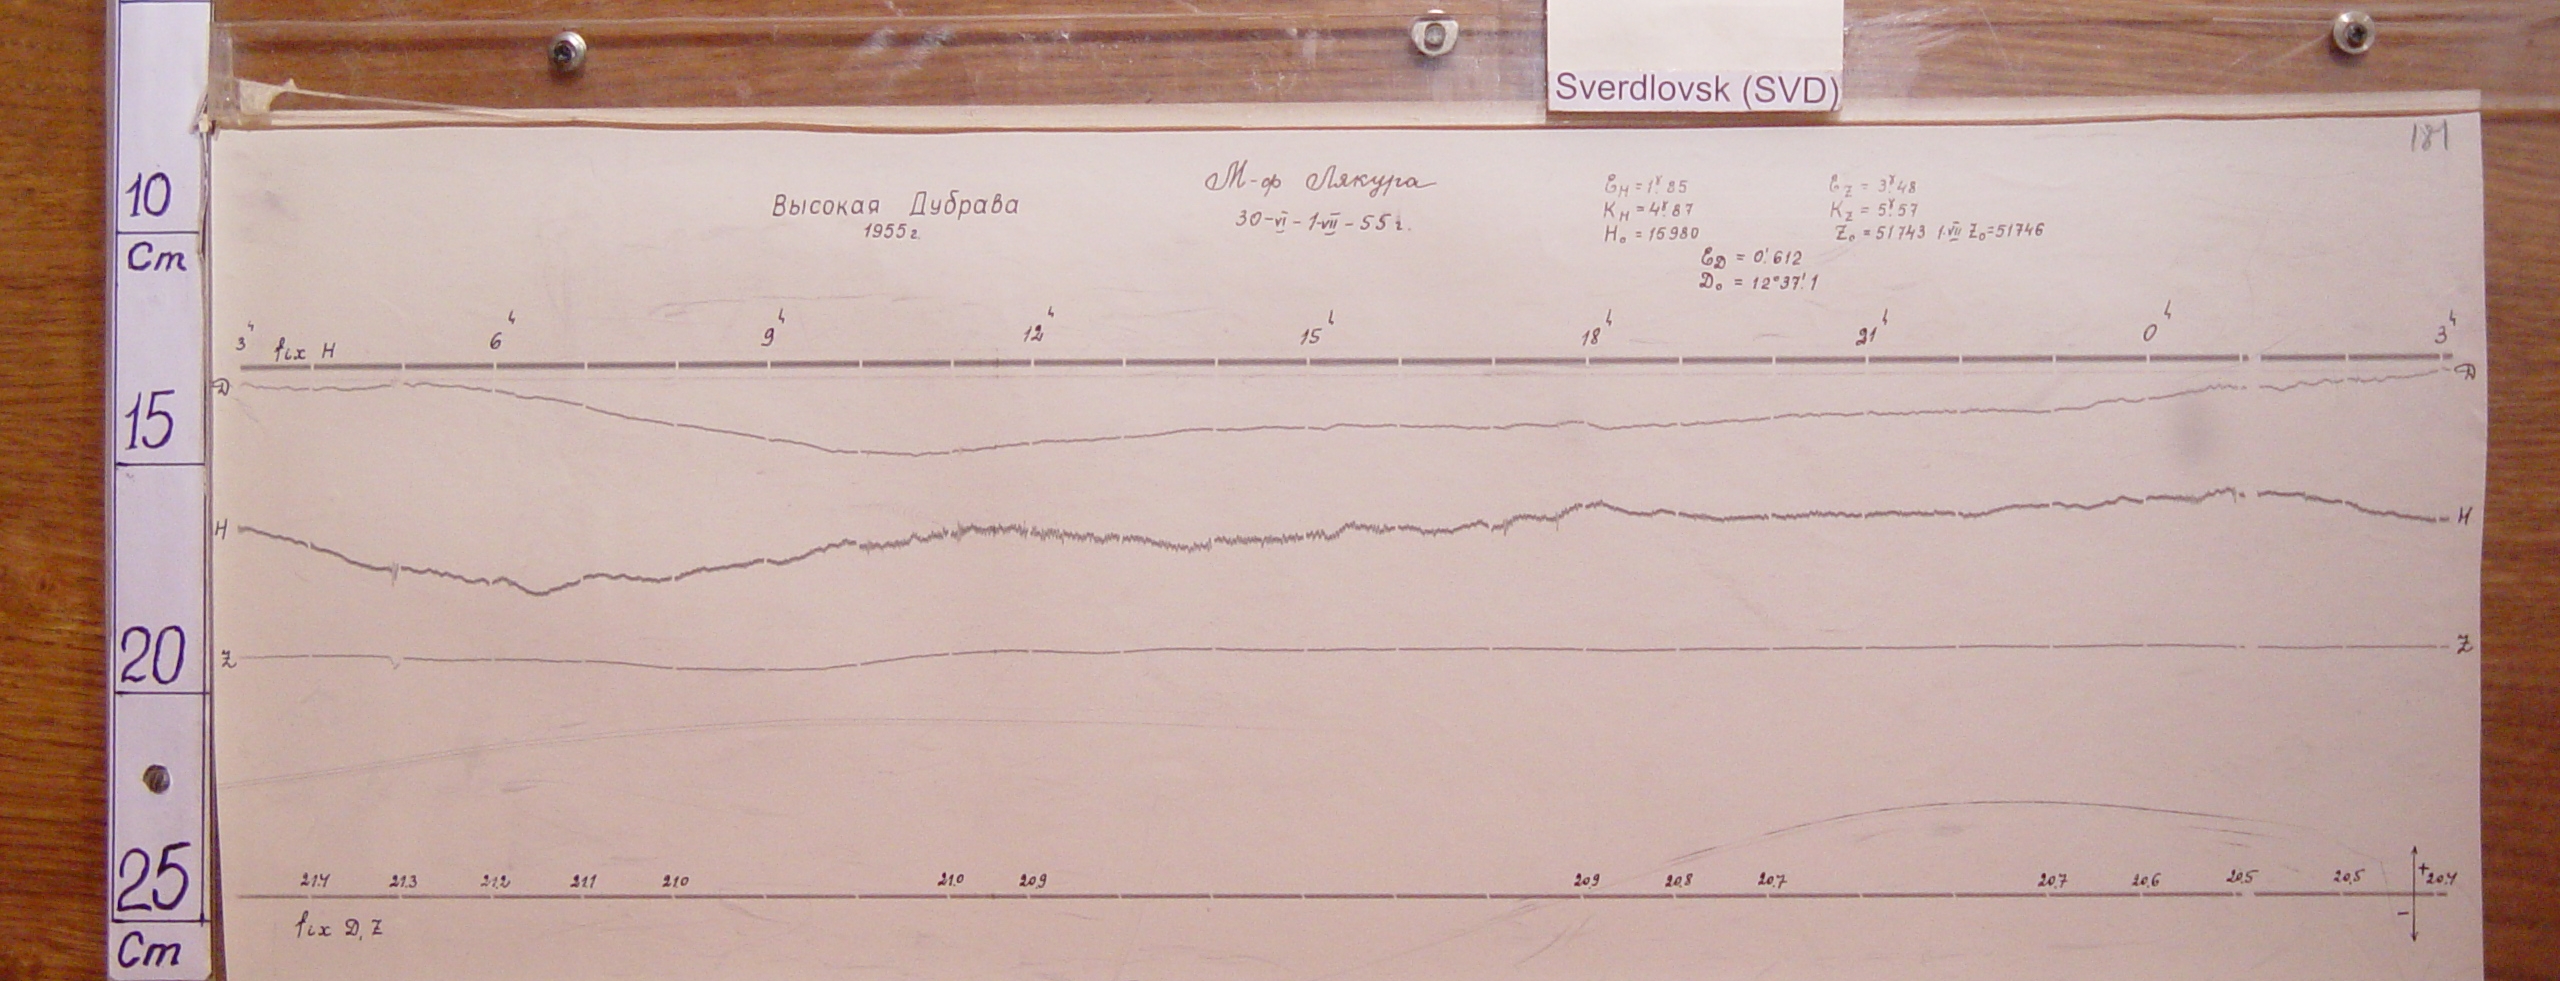 Sverdlovsk (SVD)
181
10
Cm
15
20
25
Cm
Высокая Дубрава
1955 г.
М-ф Лякура
30-VI-1-VII-55 г.
Ɛн = 1ɣ.85
Kн = 4ɣ.87
H₀ = 15980
Ɛz = 3ɣ.48
Kz = 5ɣ.57
Z₀ = 51743 1-VII Z₀=51746
ƐD = 0'.612
D₀ = 12°37'.1
3ч 6ч 9ч 12ч 15ч 18ч 21ч 0ч 3ч
fix H
D D
H H
Z Z
21.4 21.3 21.2 21.1 21.0 21.0 20.9 20.9 20.8 20.7 20.7 20.6 20.5 20.5 + 20.4
-
fix D, Z